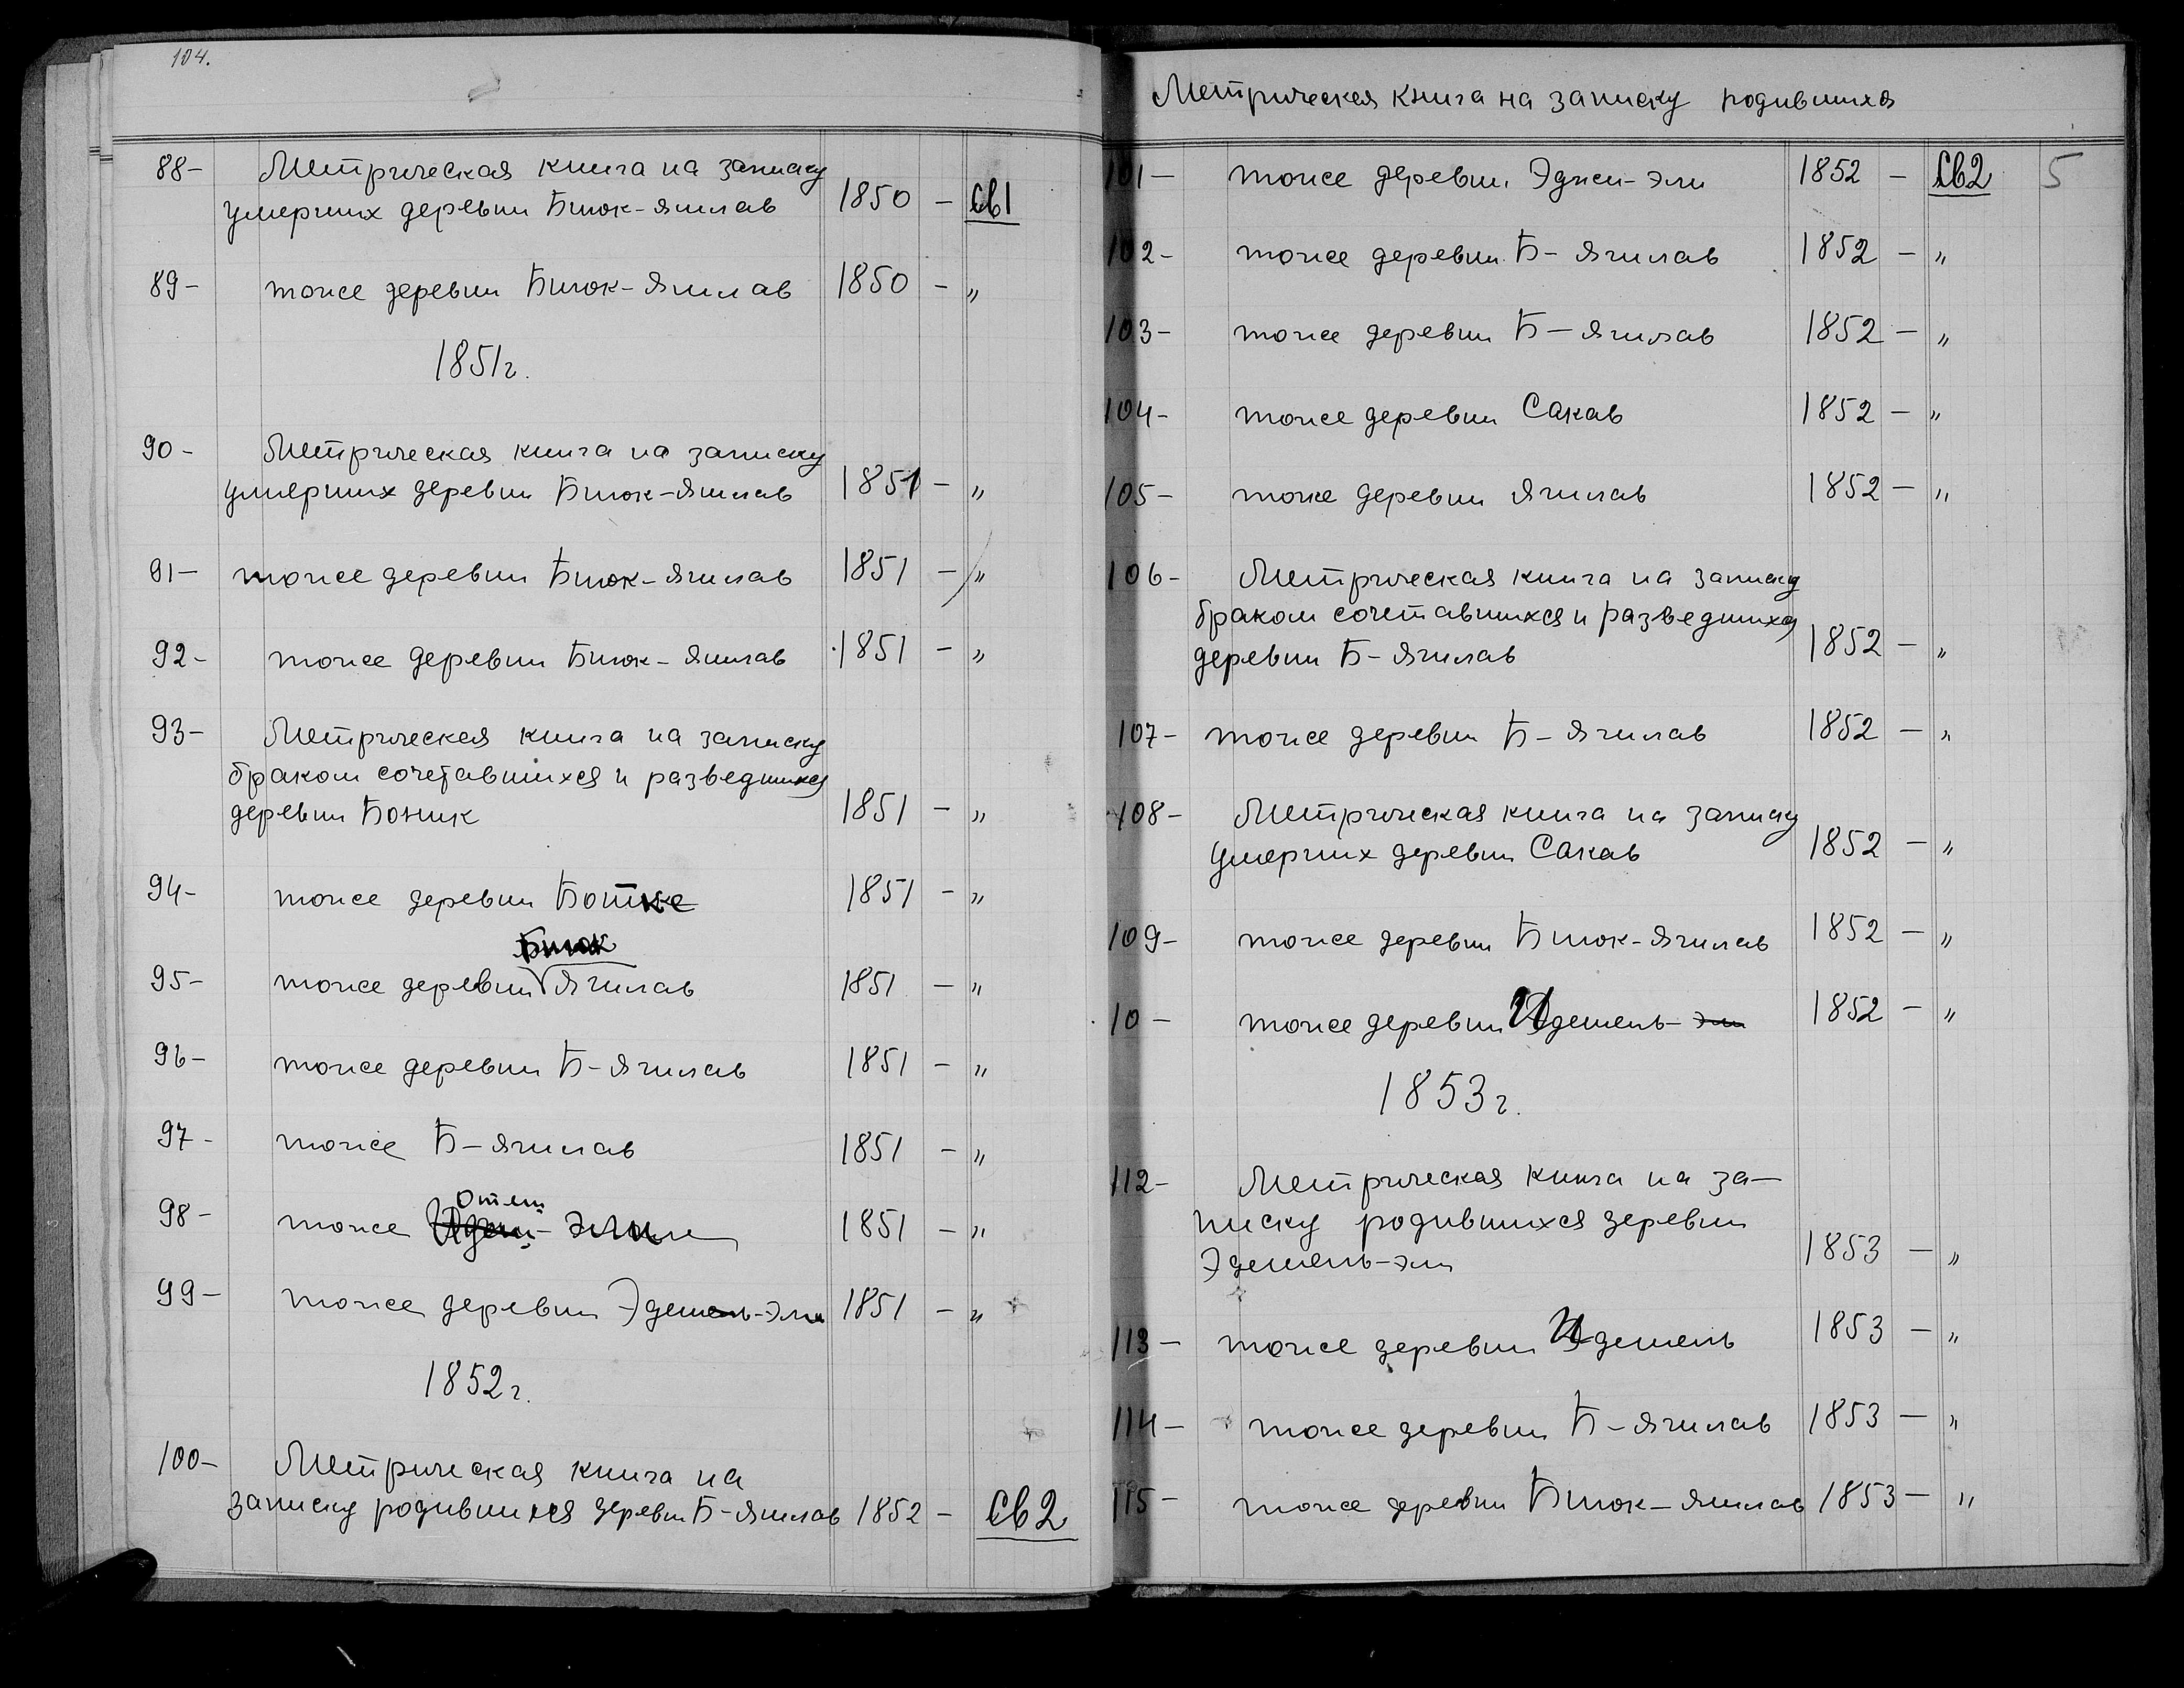 104.
88- Метрическая книга на записку
умерших деревни Биюк-Яшлав 1850 - Св1
89- тоже деревни Биюк-Яшлав 1850 - "
1851г.
90- Метрическая книга на записку
умерших деревни Биюк-Яшлав 1851 - "
91- тоже деревни Биюк-Яшлав 1851 - "
92- тоже деревни Биюк-Яшлав 1851 - "
93- Метрическая книга на записку
браком сочетавшихся и разведшихся
деревни Боник 1851 - "
94- тоже деревни Ботке 1851 - "
Биюк
95- тоже деревни Яшлав 1851 - "
96- тоже деревни Б-Яшлав 1851 - "
97- тоже Б-Яшлав 1851 - "
98- тоже 1851 - "
99- тоже деревни Эдешель-Эли 1851 - "
1852г.
100- Метрическая книга на
записку родившихся деревни Б-Яшлав 1852 - Св2
Метрическая книга на записку родившихся
101- тоже деревни Эджи-Эли 1852 - Св2 5
102- тоже деревни Б-Яшлав 1852 - "
103- тоже деревни Б-Яшлав 1852 - "
104- тоже деревни Сакав 1852 - "
105- тоже деревни Яшлав 1852 - "
106- Метрическая книга на записку
браком сочетавшихся и разведшихся
деревни Б-Яшлав 1852 - "
107- тоже деревни Б-Яшлав 1852 - "
108- Метрическая книга на записку
умерших деревни Сакав 1852 - "
109- тоже деревни Биюк-Яшлав 1852 - "
10- тоже деревни Идешель-эли 1852 - "
1853г.
112- Метрическая книга на за-
писку родившихся деревни
Эдешель-эли 1853 - "
113- тоже деревни Идешель 1853 - "
114- тоже деревни Б-Яшлав 1853 - "
115- тоже деревни Биюк-Яшлав 1853 - "